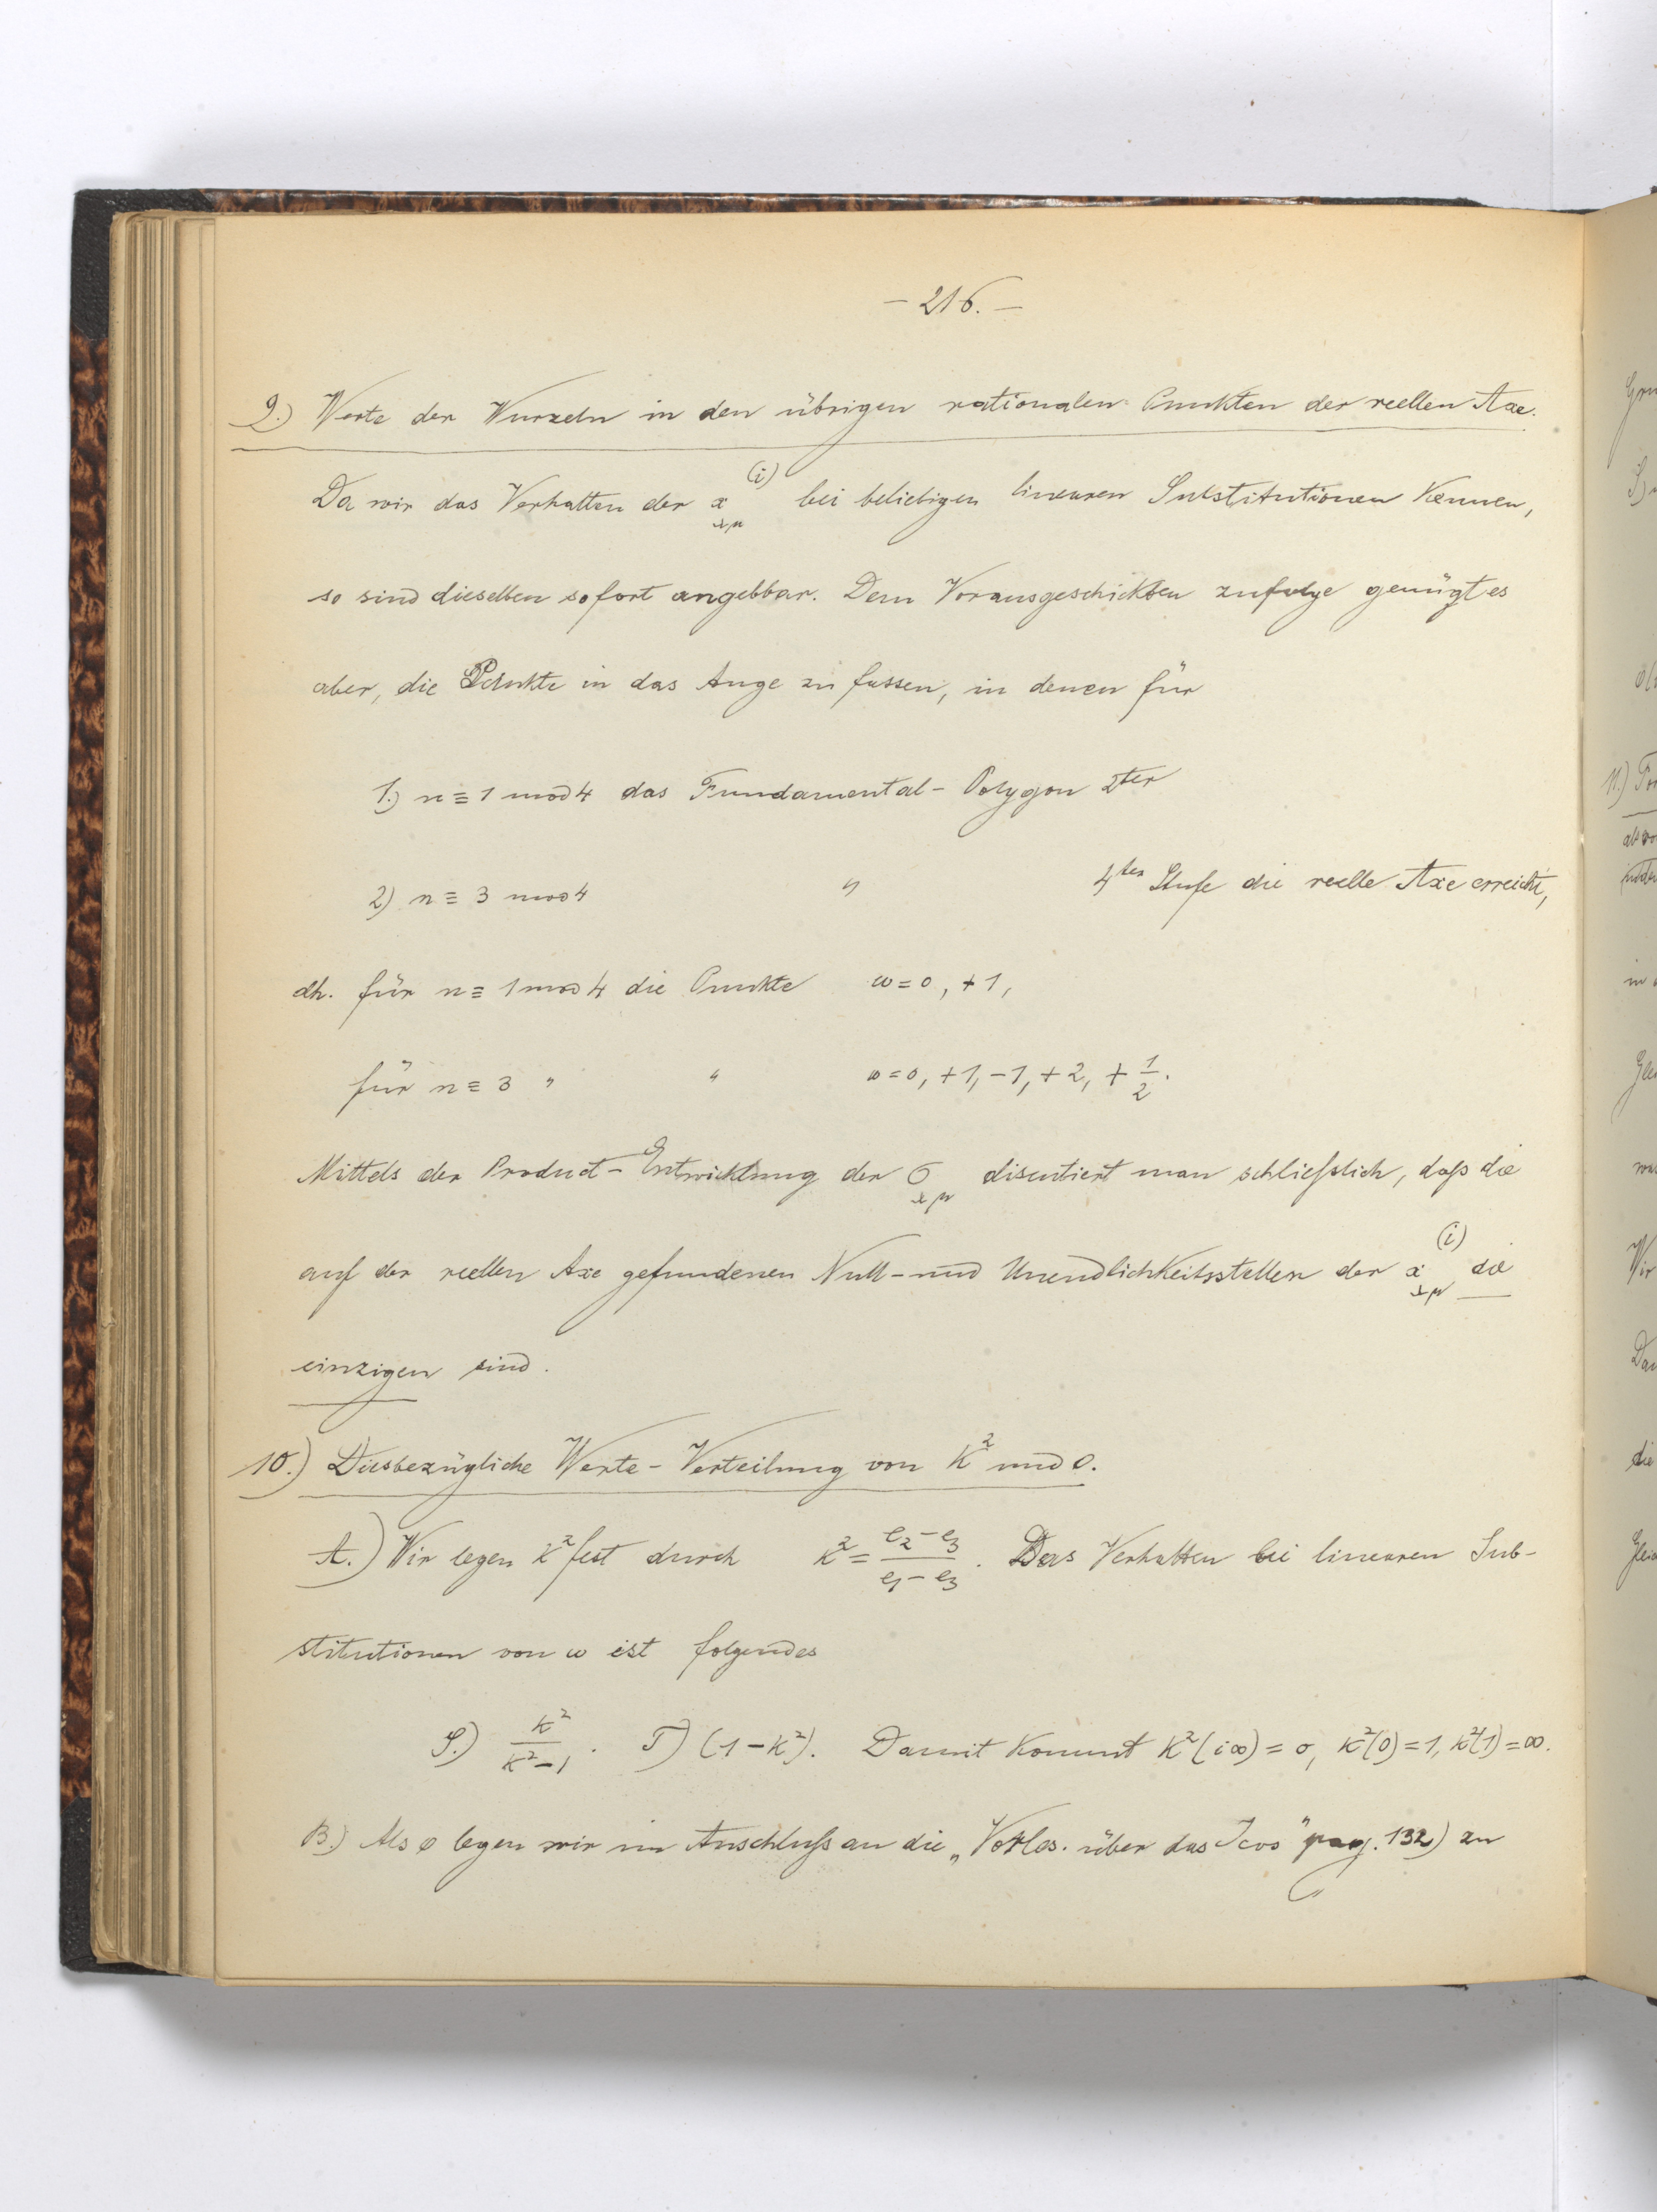 – 216. –
9.) Werte der Wurzeln in den übrigen rationalen Punkten der reellen Axe.
Da wir das Verhalten der x_{λμ}^{(i)} bei beliebigen linearen Substitutionen kennen,
so sind dieselben sofort angebbar. Dem Vorausgeschickten zufolge genügt es
aber, die Punkte in das Auge zu fassen, in denen für
1.) n ≡ 1 mod 4 das Fundamental-Polygon 2ter
2) n ≡ 3 mod 4 " 4ter Stufe die reelle Axe erreicht,
dh. für n ≡ 1 mod 4 die Punkte ω = 0, +1,
für n ≡ 3 " " ω = 0, +1, -1, +2, + 1/2.
Mittels der Product-Entwicklung der σ_{λμ} discutiert man schließlich, daß die
auf der reellen Axe gefundenen Null- und Unendlichkeitsstellen der x_{λμ}^{(i)} die
einzigen sind.
10.) Diesbezügliche Werte-Verteilung von k² und o.
A.) Wir legen k² fest durch k² = (e₂-e₃)/(e₁-e₃). Das Verhalten bei linearen Sub-
stitutionen von ω ist folgendes
S.) k²/(k²-1). T) (1-k²). Damit kommt k²(i∞) = 0, k²(0) = 1, k²(1) = ∞.
B.) Als o legen wir im Anschluß an die „Vorles. über das Icos" pag. 132) zu